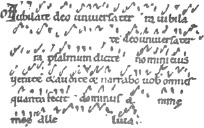 Iubilate deo universa ter ra iubila
te deo universa ter
ra psalmum dicite nomini eius
venite et audite et narrabo vobis omnis
quanta fecit dominus a nime
mee alle luia